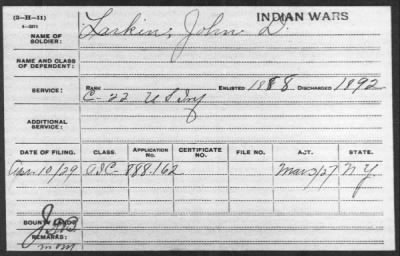 (3-H-11)
INDIAN WARS
NAME OF SOLDIER: Larkin, John D.
NAME AND CLASS OF DEPENDENT:
SERVICE: RANK ENLISTED 1888 DISCHARGED 1892
C-22 U S Inf
ADDITIONAL SERVICE:
DATE OF FILING. CLASS. APPLICATION NO. CERTIFICATE NO. FILE NO. ACT. STATE.
Apr. 10/29 888.162 Mar 3/27 N Y.
BOUNTY LAND:
REMARKS: